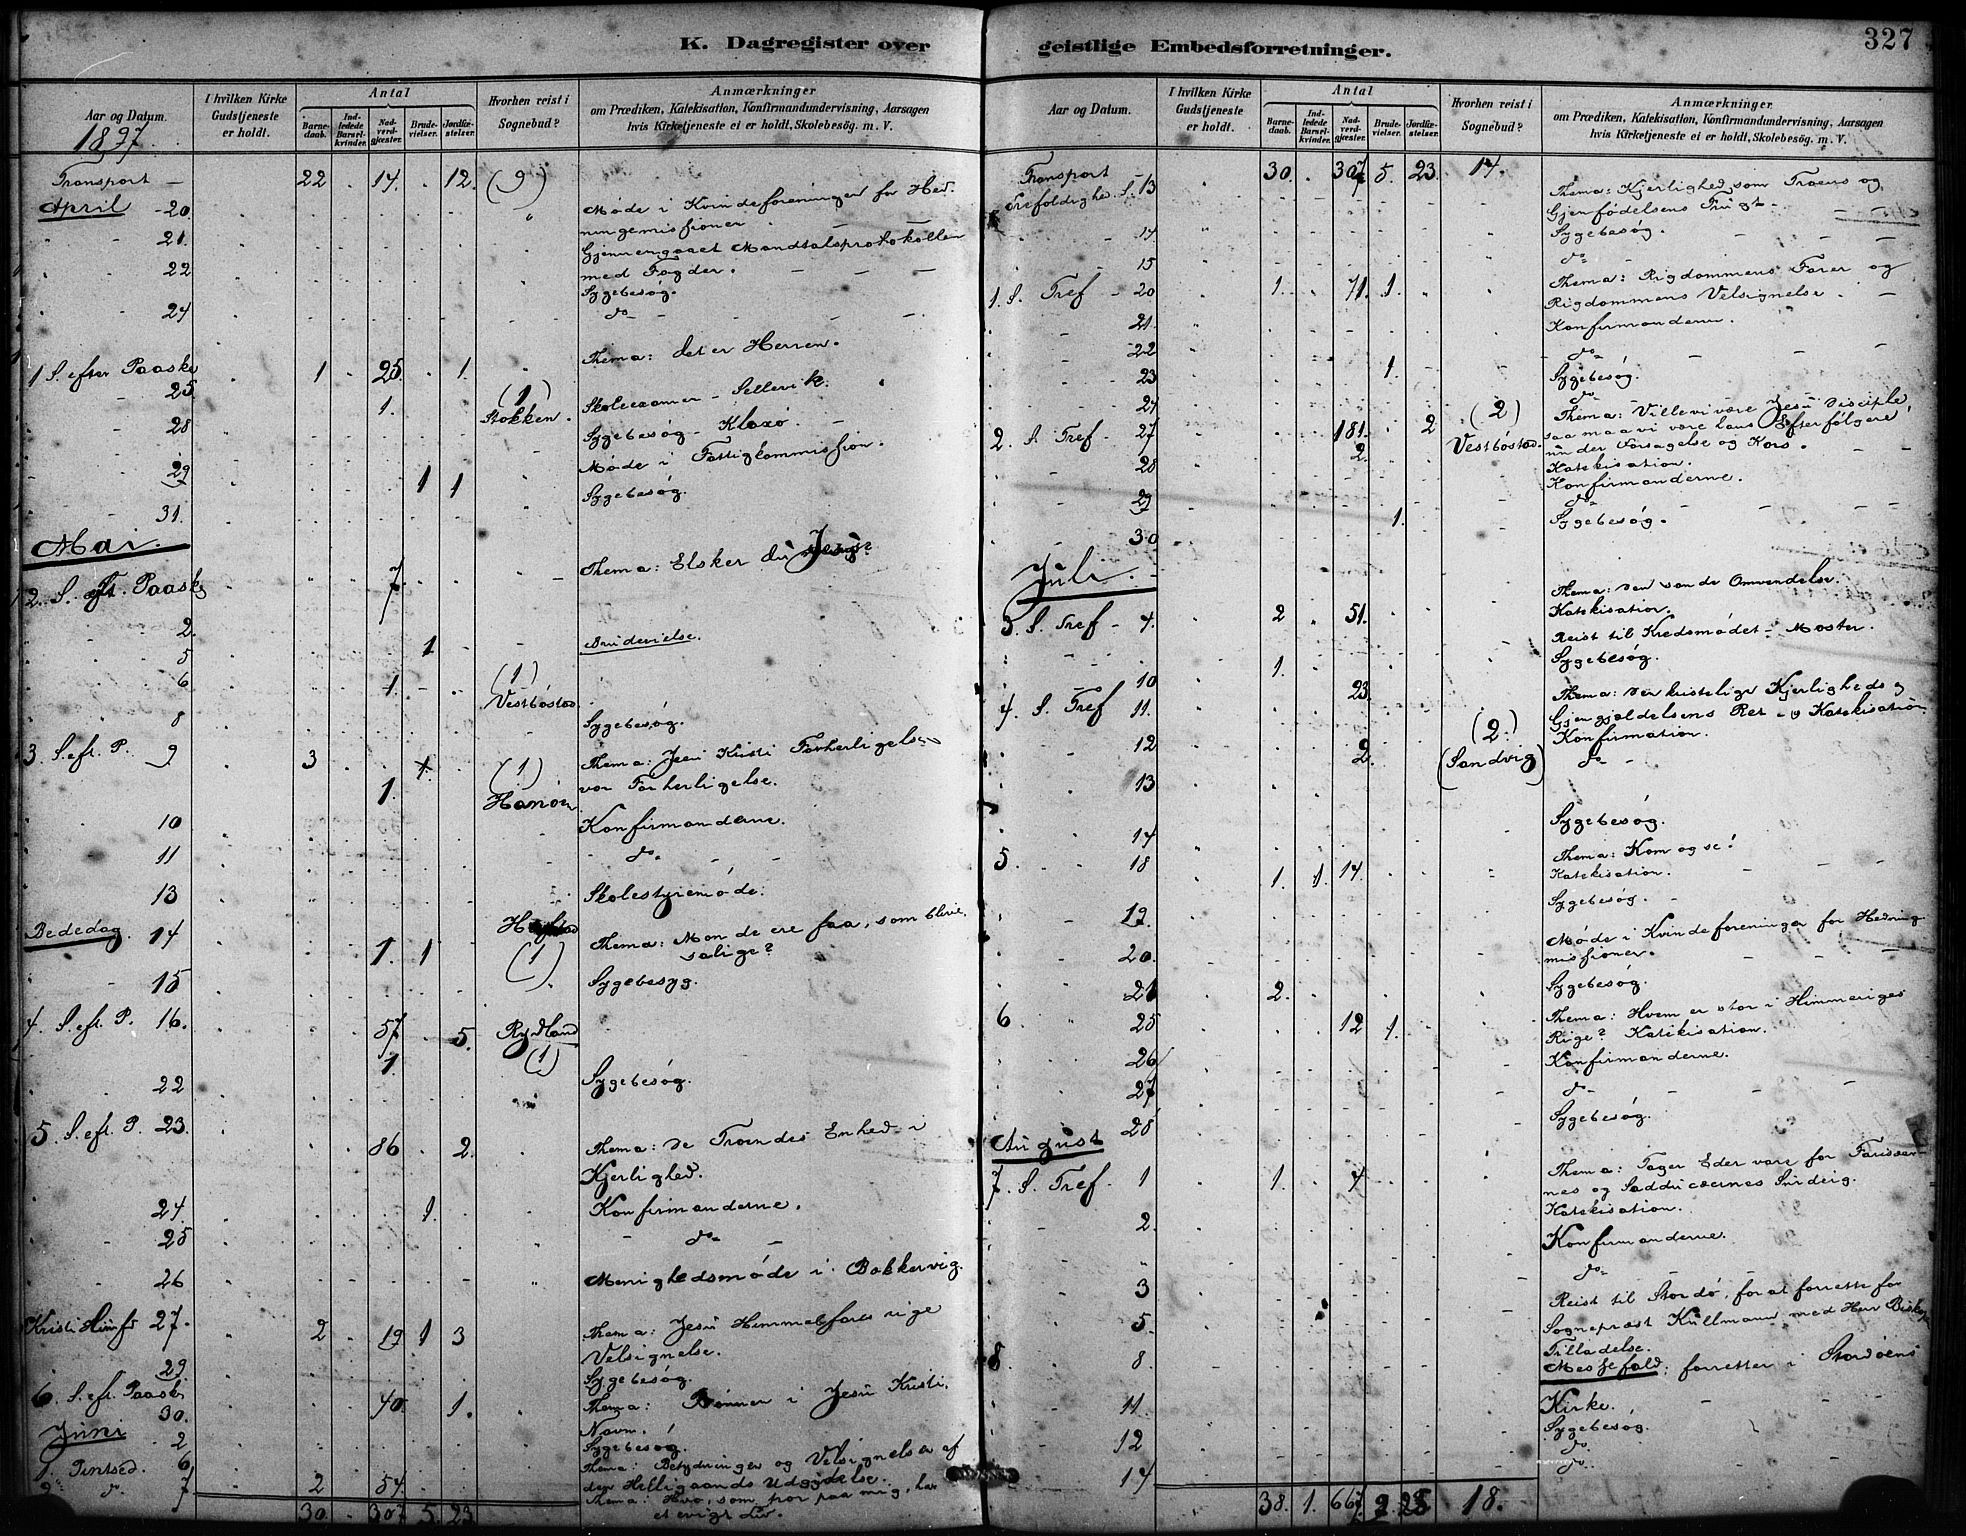 K. Dagregister over geistlige Embedsforretninger.
327
Aar og Datum.
1897.
I hvilken Kirke
Gudstjeneste
er holdt.
Antal
Barne-
daab.
Ind-
ledede
Barsel-
kvinder.
Nad-
verd-
gjæster.
Brude-
vielser.
Jordfæ-
stelser.
Hvorhen reist i
Sognebud?
Anmærkninger
om Prædiken, Katekisation, Konfirmandundervisning, Aarsagen
hvis Kirketjeneste ei er holdt, Skolebesög. m. V.
Transport - 22 14. 12. (9)
April - 20 Møde i Kvindeforeninger for Hed-
ningemissioner.
21. Gjennemgaaet Mandtalsprotokollen
med Fogder.
22 Sygebesøg.
24 do
1 S. efter Paaske 25 1 25. 1. Thema: det er Herren.
1. (1) Stokken. Skoleexamen - Sellevik.
28 Sygebesøg - Kloxø.
Møde i Fattigkommission.
29 1 1 Sygebesøg.
31.
Mai.
2. S. eft. Paaske 7 Thema: Elsker du Jesus?
2.
5 1 Brudevielse.
6 1. (1) Vestbøstad
8 Sygebesøg.
3 S. eft. P. 9 3 1. (1) Thema: Jesu Kristi Forherligelse
vor Forherligelse.
1. Hanøen
10 Konfirmanderne.
11 do
13 Skolestyremøde.
Bededag. 14 1. 1 (1) Thema: Mon de ere faa, som blive
salige?
15 Sygebesyg.
4. S. eft. P. 16. 57 5. Rydland
1. (1)
22 Sygebesøg.
5. S. eft. P. 23. 86 2. Thema: De Troendes Enhed i
Kjerlighed.
24 1. Konfirmanderne.
25 do
26 Menighedsmøde i Bakkervig.
Kristi Himf 27. 2 19 1 3 Thema: Jesu Himmelfares rige
Velsignelse.
29 Sygebesøg.
6. S. eft. Paaske 30. 40. 1. Thema: Bønner i Jesu Kristi
Navn.
Juni 2 Sygebesøg.
1. Pintsed. 6 Thema: Betydningen og Velsignelsen af
den Helligaands Udgydelse.
2. do. 7 2 54. Thema: Hvo, som tror paa mig, har
et evigt Liv.
30. 307. 5. 23
Aar og Datum.
I hvilken Kirke
Gudstjeneste
er holdt.
Antal
Barne-
daab.
Ind-
ledede
Barsel-
kvinder.
Nad-
verd-
gjæster.
Brude-
vielser.
Jordfæ-
stelser.
Hvorhen reist i
Sognebud?
Anmærkninger
om Prædiken, Katekisation, Konfirmandundervisning, Aarsagen
hvis Kirketjeneste ei er holdt, Skolebesög. m. V.
Transport 30. 307 5. 23. 14.
Trefoldighed. S. 13 Thema: Kjerlighed som Troens og
Gjenfødelsens Frugt.
14 Sygebesøg.
15 do
1. S. Tref - 20 1. 71. 1. Thema: Rigdommens Farer og
Rigdommens Velsignelse.
21. Konfirmanderne.
22 do
23 1. Sygebesøg.
24 do
2. S Tref - 27 181. 2 (2) Thema: Ville vi være Jesu Disciple
saa maa vi være hans Efterfølgere
under Forsagelse og Kors.
2. Vestbøstad. Katekisation.
28 Konfirmanderne.
29 do
30 1. Sygebesøg.
Juli.
3. S. Tref - 4. 2 51. Thema: Den sande Omvendelse.
Katekisation.
Reist til Kredsmødet - Moster.
10 1. Sygebesøg.
4. S. Tref 11. 23. Thema: Den kristelige Kjerligheds og
Gjengjældelsens Ret - og Katekisation
12 2. (2.) (Sandvig) Konfirmation.
13 do
14 Sygebesøg.
5. 18 1. 1. 14. Thema: Kom og se!
Katekisation.
19. Sygebesøg.
20. Møde i Kvindeforeninger for Hedning
missioner.
21 2. Sygebesøg.
6 25 12 1. Thema: Hvem er stor i Himmeriges
Rige? Katekisation.
26 Konfirmanderne.
27 do
28 Sygebesøg.
August
7. S. Tref. 1 1. 4 Thema: Tager Eder vare for Farisæer-
nes og Sadducæernes Surdeig.
Katekisation.
2. Konfirmanderne.
3 do
5. Reist til Stordø, for at forrette for
Sognepræst Kullmann, med Herr Biskop
Tilladelse.
8 8. Messefald; forretter i Stordøens
Kirke.
11. Sygebesøg.
12 do
14 do.
38. 1. 667. 2. 25 18.